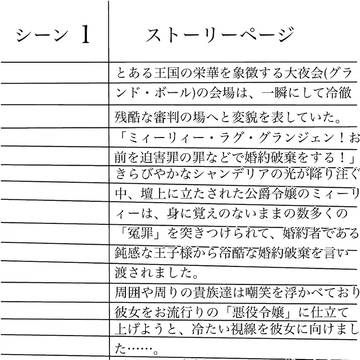 シーン 1
ストーリーページ
とある王国の栄華を象徴する大夜会(グラ
ンド・ボール)の会場は、一瞬にして冷徹
残酷な審判の場へと変貌を表していた。
「ミィーリィー・ラグ・グランジェン！お
前を迫害罪の罪などで婚約破棄をする！」
きらびやかなシャンデリアの光が降り注ぐ
中、壇上に立たされた公爵令嬢のミィーリ
ィーは、身に覚えのないままの数多くの
「冤罪」を突きつけられて、婚約者である
鈍感な王子様から冷酷な婚約破棄を言い
渡されました。
周囲や周りの貴族達は嘲笑を浮かべており
彼女をお流行りの「悪役令嬢」に仕立て
上げようと、冷たい視線を彼女に向けまし
た……。